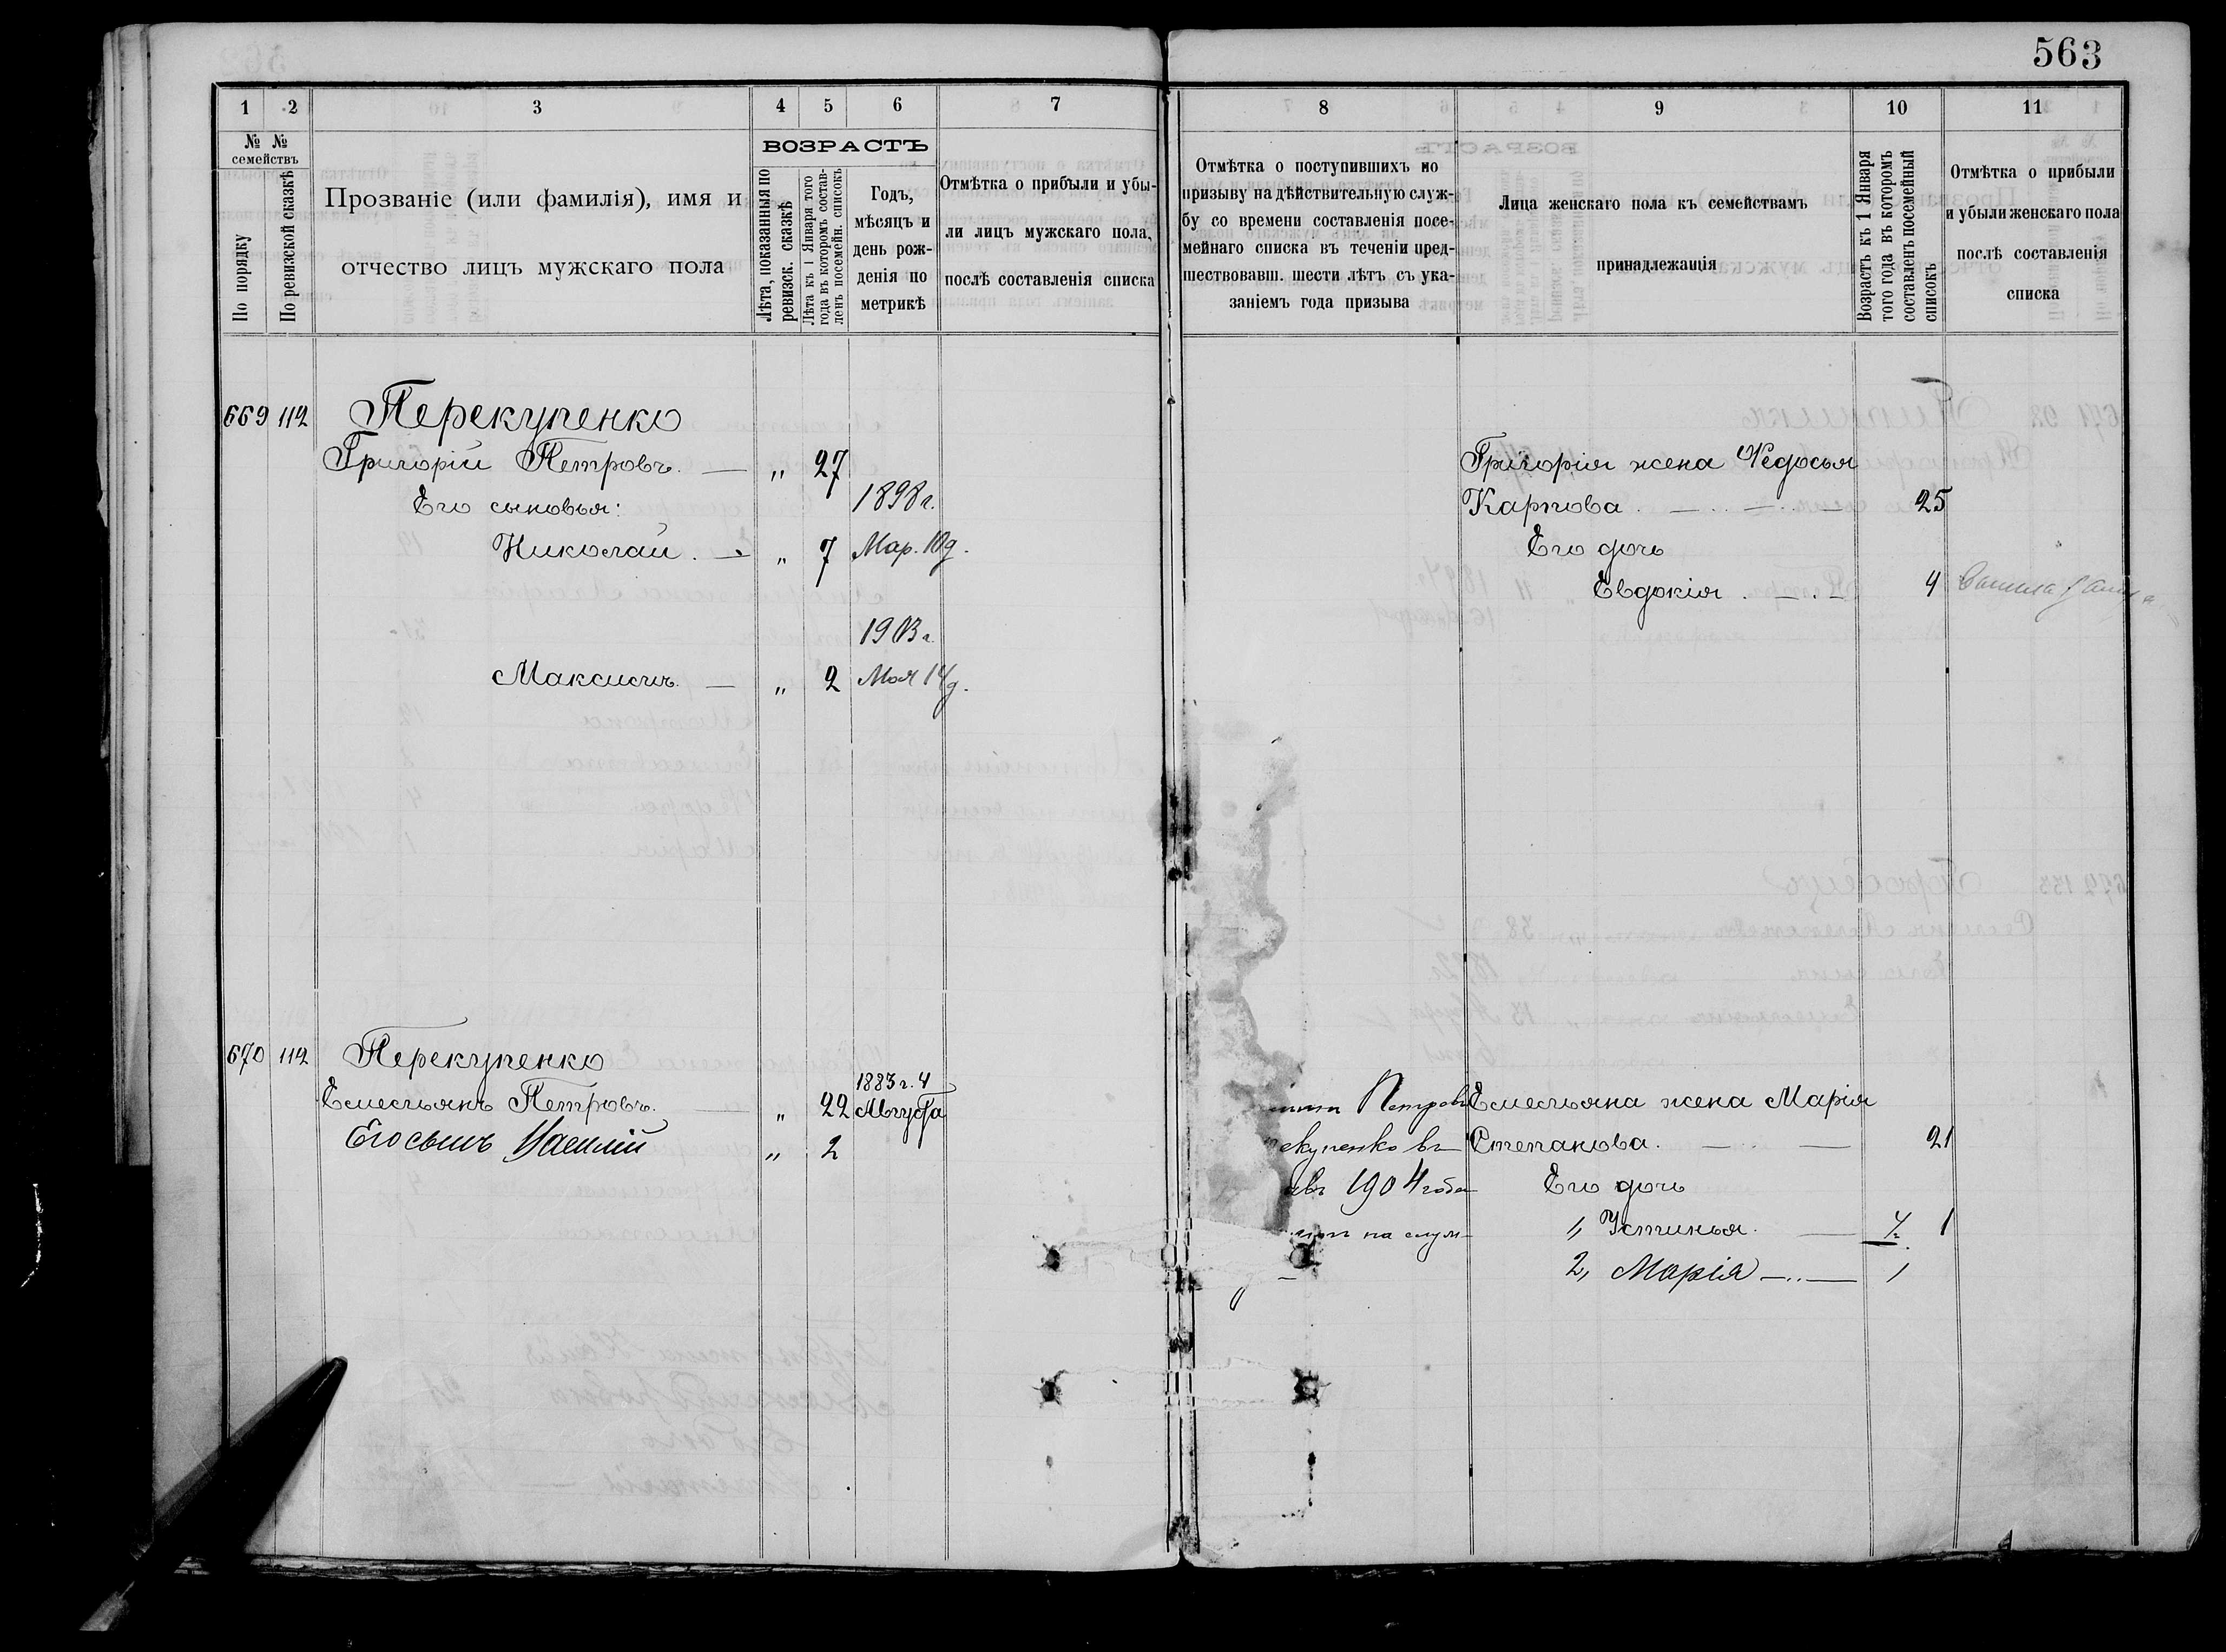 563
1 2 3 4 5 6 7
№ № семействъ
По порядку
По ревизской сказкѣ
Прозваніе (или фамилія), имя и
отчество лицъ мужскаго пола
ВОЗРАСТЪ
Лѣта, показанныя по
ревизск. сказкѣ
Лѣта къ 1 Января того
года въ которомъ состав-
ленъ посемейн. списокъ
Годъ,
мѣсяцъ и
день рож-
денія по
метрикѣ
Отмѣтка о прибыли и убы-
ли лицъ мужскаго пола,
послѣ составленія списка
8 9 10 11
Отмѣтка о поступившихъ по
призыву на дѣйствительную служ-
бу со времени составленія посе-
мейнаго списка въ теченіи пред-
шествовавш. шести лѣтъ съ ука-
заніемъ года призыва
Лица женскаго пола къ семействамъ
принадлежащія
Возрастъ къ 1 Января
того года въ которомъ
составленъ посемейный
списокъ
Отмѣтка о прибыли
и убыли женскаго пола
послѣ составленія
списка
669 112 Перекупенко
Григорій Петровъ. — „ 27
Его сыновья: 1898 г.
Николай. — „ 7 Мар. 10 д.
1903 г.
Максимъ. — „ 2 Мая 14 д.
Григорія жена Ѳедосья
Карпова. — 25
Его дочь
Евдокія. — 4
670 112 Перекупенко
1883 г. 4
Емельянъ Петровъ. — „ 22 Августа
Его сынъ Василій „ 2
Петровъ
екупенко въ
1904 года
на служ-
Емельяна жена Марія
Степанова. — 21
Его дочь
1, Устинья. — 1
2, Марія — 1